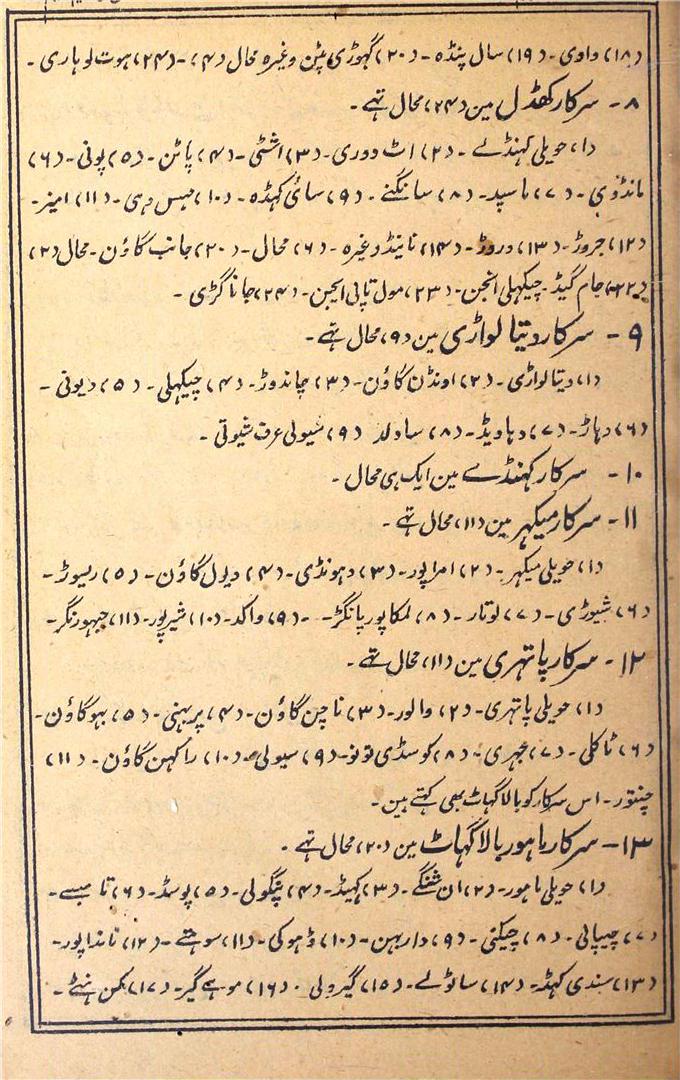 (۱۸) واوی - (۱۹) سال پنڈہ - (۲۰) گہوڑی پٹن وغیرہ محال (۴) - (۲۴) ہوت لوہاری -
۸ - سرکار کھڈل مین (۲۴) محال تہے -
(۱) حویلی کہنڈلے - (۲) اٹ دوری - (۳) اشٹی - (۴) پاٹن - (۵) پونی - (۶)
مانڈوہی - (۷) ماسپد - (۸) سانگنے - (۹) سائی کہڈہ - (۱۰) جیس دہی - (۱۱) امنیر -
(۱۲) جروڑ - (۱۳) دروڑ - (۱۴) ناینڈ وغیرہ - (۶) محال - (۲۰) جانب گاؤن - محال (۲)
(۲۲) جام گیڈ - چیکہلی انجن - (۲۳) مول تاپی انجن - (۲۴) جانا گڑی -
۹ - سرکار دیتا لواڑی مین (۹) محال تہے -
(۱) دیتا لواڑی - (۲) اونڈن گاؤن - (۳) چاندوڑ - (۴) چیکہلی - (۵) دیونی -
(۶) دہاڑ - (۷) دہاویڈ - (۸) ساولد (۹) شیولی عرف شیوتی -
۱۰ - سرکار کہنڈلے مین ایک ہی محال -
۱۱ - سرکار میکہر مین (۱۱) محال تہے -
(۱) حویلی میکہر - (۲) امراپور - (۳) دہونڈی - (۴) دیول گاؤن - (۵) ریسوڑ -
(۶) شیوڑی - (۷) لوتار - (۸) لمکاپور پانگڑ - (۹) واکد - (۱۰) شیرپور - (۱۱) جبہورنگر -
۱۲ - سرکار پاتہری مین (۱۱) محال تہے -
(۱) حویلی پاتہری - (۲) والور - (۳) تاچن گاؤن - (۴) پربہنی - (۵) بہوگاؤن -
(۶) ٹاکلی - (۷) جہری - (۸) کوسڈی نونو - (۹) سیولی - (۱۰) راکہن گاؤن - (۱۱)
چنتور - اس سرکار کو بالا گہاٹ بھی کہتے ہین -
۱۳ - سرکار ماہور بالا گہاٹ مین (۲۰) محال تہے -
(۱) حویلی ماہور - (۲) ان شنگے - (۳) کہیڈ - (۴) پنگولی - (۵) پوسڈ - (۶) تامسے -
(۷) چیپانی - (۸) چیکنی - (۹) داربہن - (۱۰) ڈہوکی - (۱۱) سوہتے - (۱۲) ناندا پور -
(۱۳) سندی کہڈ - (۱۴) سانولے - (۱۵) گیرولی - (۱۶) موہے گیر - (۱۷) نکن ہٹے -